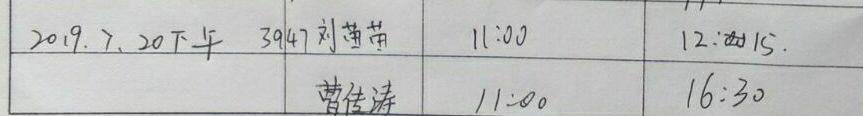 2019.7.20下午 3947 刘苗苗 11:00 12:15.
曹传涛 11:00 16:30